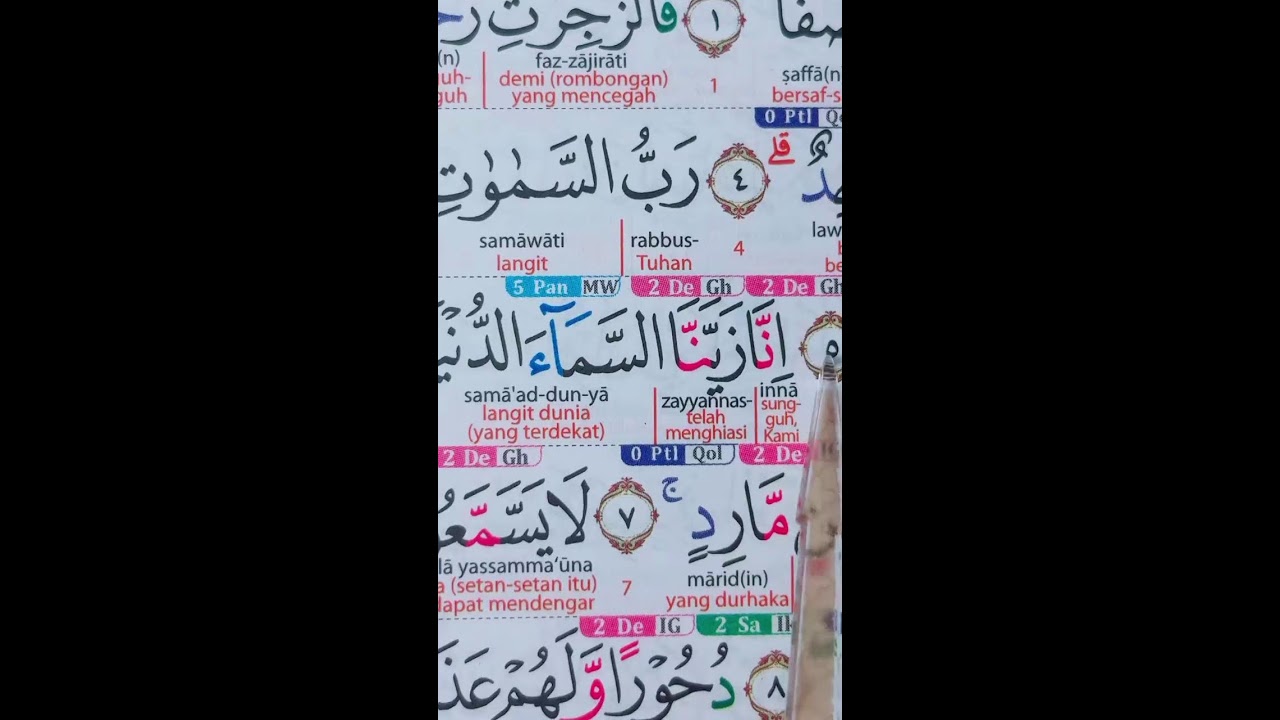 صفا ١ فالزجرت
ṣaffā(n faz-zājirāti (n)
bersaf-s 1 demi (rombongan) yang mencegah uh- guh
0 Ptl
٤ رَبُّ السَّمٰوٰتِ
law 4 rabbus- samāwāti
Tuhan langit
2 De Gh 2 De Gh 5 Pan MW
٥ اِنَّا زَيَّنَّا السَّمَاۤءَ الدُّنْيَ
innā zayyannas- samā'ad-dun-yā
sung-guh, Kami telah menghiasi langit dunia (yang terdekat)
2 De 0 Ptl Qol 2 De Gh
مَّارِدٍ ۚ ٧ لَا يَسَّمَّعُ
mārid(in) 7 lā yassamma‘ūna
yang durhaka a (setan-setan itu) lapat mendengar
2 Sa 2 De IG
٨ دُحُوْرًا وَّلَهُمْ عَذَ